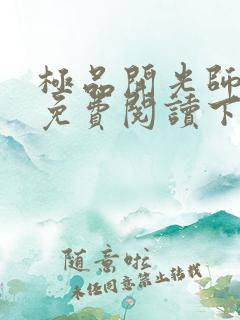 極品開光師
免費閱讀下
随意啦
未经同意禁止转载